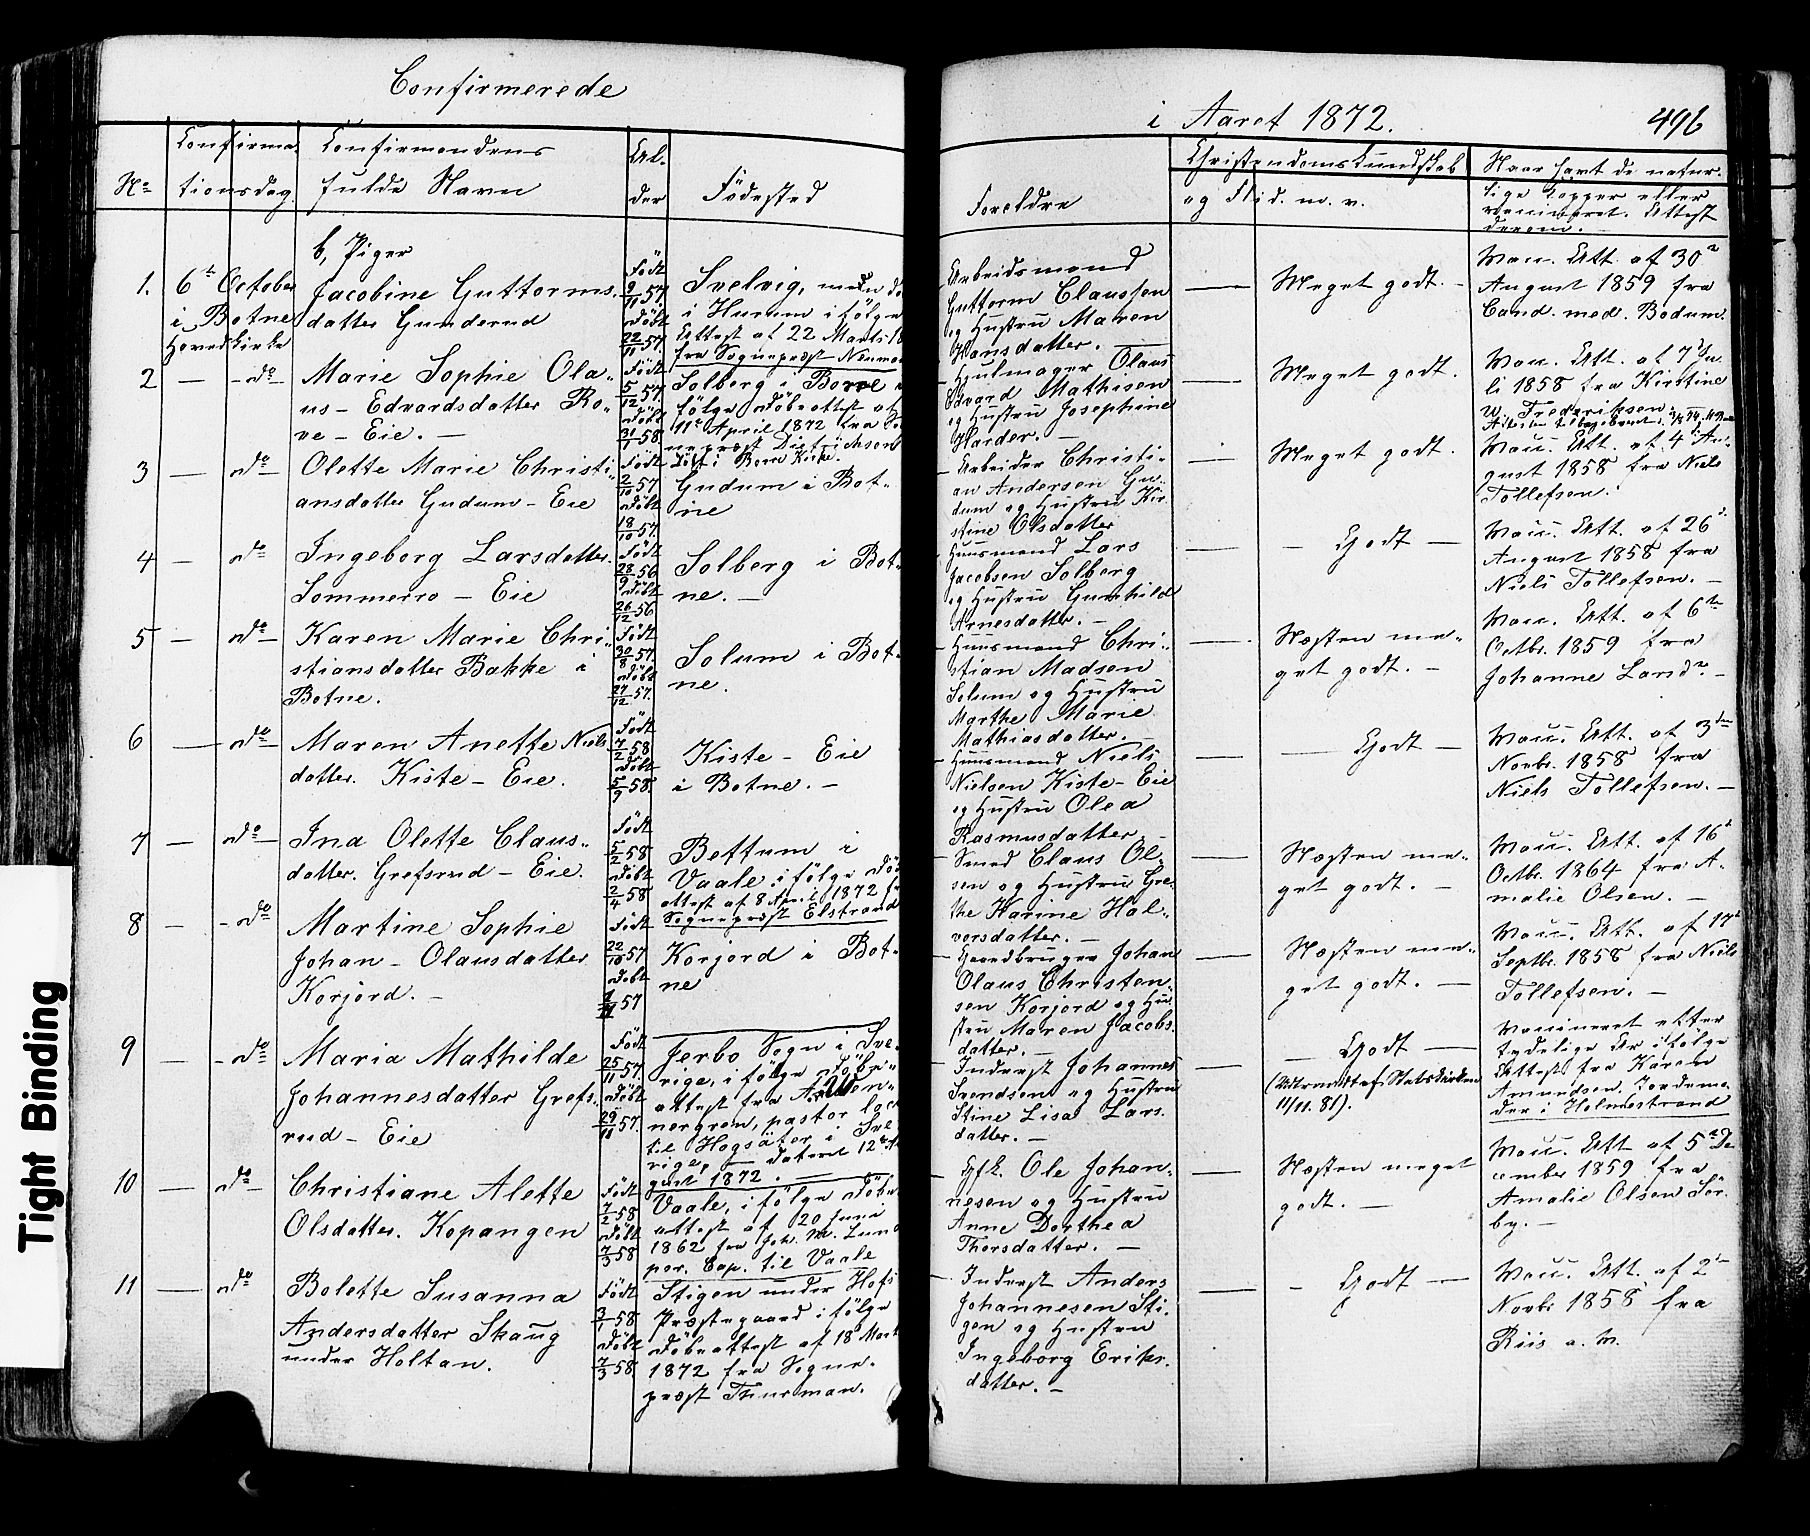 Confirmerede
i Aaret 1872.
496
No
Confirma-
tionsdag.
Confirmandens
fulde Navn
Al-
der
Födested
Foreldre
Christendomskundskab
og Flid. m. v.
Naar havt de natur-
lige Kopper eller
vaccineret. Attest
derom.
b, Piger
1.
6te October
i Botne
Hovedkirke
Jacobine Guttorms-
datter Gunderud
Födt
9/11 57.
Döbt
22/11 57.
Svelvig, men dö
i Hurum ifölge
Attest af 22 Marts 18
fra Sognepræst Neuman
Arbeidsmand
Guttorm Claussen
og Hustru Maren
Hansdatter. —
Meget godt. -
Vacc. Att. af 30te
August 1859 fra
Cand. med. Bodum.
2 — - do -
Marie Sophie Ola-
us - Edvardsdatter Ro-
ve - Eie. —
Födt
5/12 57.
Döbt
31/1 58.
Solberg i Borre i
fölge Döbeattest af
11te April 1872 fra So
nepræst Dietrichsen
Döbt i Borre Kirke.
Hjulmager Olaus
Edvard Mathisen
og Hustru Josephine
Harder. —
Meget godt.
Vacc. Att. af 7 Ju-
li 1858 fra Kirstine
W. Frederiksen.
3 — do
Olette Marie Christi-
ansdatter Gudum - Eie
Födt
2/10 57
Döbt
18/10 57.
Gudum i Bot-
ne
Arbeider Christi-
an Andersen Gu-
dum og Hustru Kir-
stine Olsdatter
Meget godt.
Vacc. Att. af 4de Au-
gust 1858 fra Niels
Tollefsen.
4 — do
Ingeborg Larsdatter.
Sommerro - Eie
Födt
28/9 56
Döbt
26/12 56
Solberg i Bot-
ne. —
Huusmand Lars
Jacobsen Solberg
og Hustru Gunhild
Arnesdatter. —
- Godt —
Vacc. Att. af 26de
August 1858 fra
Niels Tollefsen. —
5 — do —
Karen Marie Chri-
stiansdatter Bakke i
Botne.
Födt
30/8 57.
Döbt
27/12 57.
Solum i Bot-
ne.
Huusmand Chri-
stian Madsen
Solum og Hustru
Marthe Marie
Mathiasdatter. —
Næsten me-
get godt. -
Vacc. Att. af 6te
Octbr. 1859 fra
Johanne Land? -
6 — do —
Maren Anette Niels
datter. Kiste - Eie.
Födt
7/2 58
Döbt
5/9 58.
Kiste - Eie
i Botne. —
Huusmand Niels
Nielsen Kiste - Eie
og Hustru Olea
Rasmusdatter. —
- Godt -
Vacc. Att. af 3die
Novbr. 1858 fra
Niels Tollefsen. —
7 — do —
Ina Olette Claus-
datter. Grefsrud - Eie.
Födt
5/2 58
Döbt
2/4 58
Bettum i
Vaale, ifölge Döb
attest af 8 April 1872 fr
Sognepræst Elstrand
Smed Claus Ol-
sen og Hustru Gre-
the Karine Hal-
vorsdatter. —
Næsten me-
get godt. -
Vacc. Att. af 16de
Octbr. 1864 fra A-
malie Olsen. -
8 — - do
Martine Sophie
Johan - Olausdatter
Korjord. -
Födt
22/10 57
Döbt
1/11 57
Korjord i Bot-
ne
Gaardbruger Johan
Olaus Christen-
sen Korjord og Hu-
stru Maren Jacobs-
datter. —
Næsten me-
get godt. -
Vacc. Att. af 17de
Septbr. 1858 fra Niels
Tollefsen. —
9 — - do
Maria Mathilde
Johannesdatter Grefs-
rud - Eie
Födt
25/11 57.
Döbt
29/11 57.
Jerbo Sogn i Sve-
rige, ifölge Döbe-
attest fra
pastor loci
til Högsäter i Sve
rige, — dateret 12te A
gust 1872. —
Inderst Johannes
Svendsen og Hustru
Stine Lisa Lars-
datter. —
- Godt —
(Udtraadt af Statskirken
11/11. 81).
Vaccineret efter
tydelige Ar ifölge
Attest fra Karen
Amundsen, Jordemo-
der i Holmestrand
10 — do —
Christiane Alette
Olsdatter. Kopangen
Födt
7/2 58
Döbt
7/3 58
Vaale, ifölge Döbe-
attest af 20 Juni
1862 fra Joh. M. Lund
per. Cap. til Vaale
Gfk. Ole Johan-
nesen og Hustru
Anne Dorthea
Thorsdatter. —
Næsten meget
godt. —
Vacc. Att af 5te De
cember 1859 fra
Amalie Olsen Sör-
by. -
11 — do
Bolette Susanna
Andersdatter Skaug
under Holtan.
Födt
3/1 58
Döbt
7/3 58
Stigen under Hofs
Præstegaard ifölge
Döbeattest af 18 Mart
1872 fra Sogne-
præst Thurman.
Inderst Anders
Johannesen Sti-
gen og Hustru
Ingeborg Eriks-
datter. —
- Godt —
Vacc. Att. af 2den
Novbr 1858 fra
Riis a. M.
Tight Binding